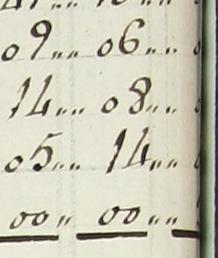 09,, 06,,
14,, 08,,
05,, 14,,
00,, 00,,